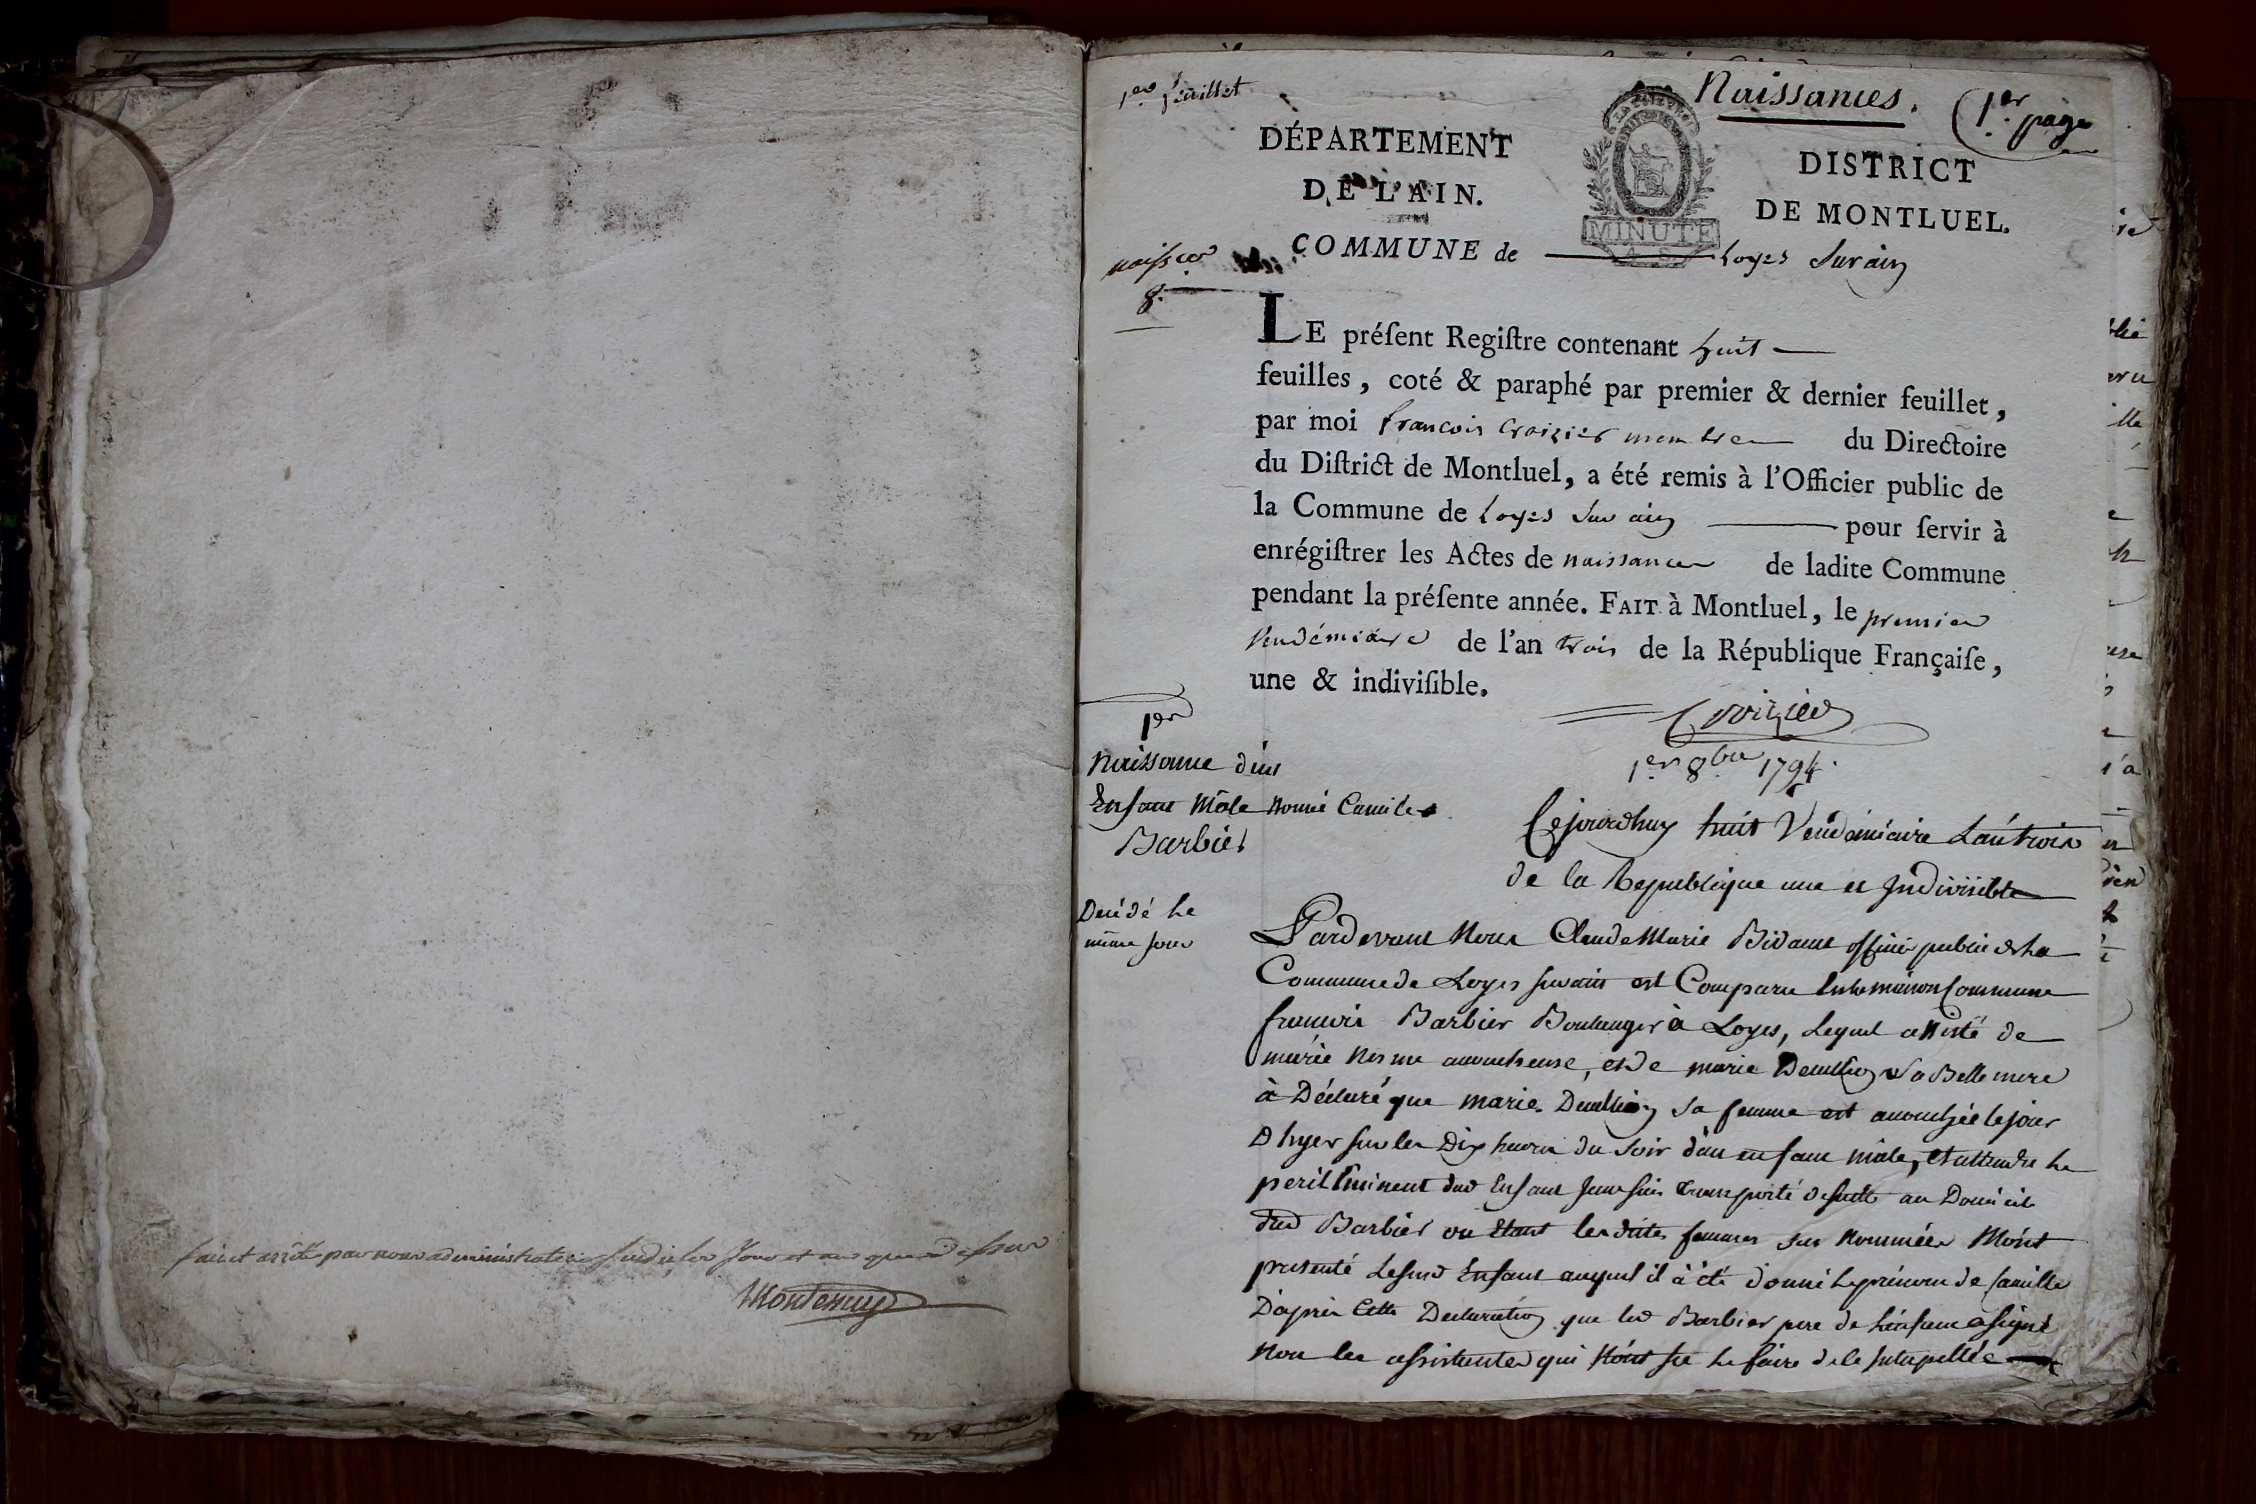 fait et arrêté par nous administrateur susdit, les jour et an que dessus
Montenuy
1er feuillet
Naissances.
1er page
DÉPARTEMENT
DE L'AIN.
DISTRICT
DE MONTLUEL.
MINUTE
COMMUNE de Loyes Surain
naissces
8.
LE préſent Regiſtre contenant huit
feuilles, coté & paraphé par premier & dernier feuillet,
par moi francois Croizier membre du Directoire
du Diſtrict de Montluel, a été remis à l'Officier public de
la Commune de Loyes Sur ain pour ſervir à
enrégiſtrer les Actes de naissances de ladite Commune
pendant la préſente année. FAIT à Montluel, le premier
Vendémiaire de l'an trois de la République Françaiſe,
une & indiviſible.
Croizier
1er 8bre 1794.
1er
Naissance d'un
Enfant Mâle nommé Camille
Barbier
Décédé le
même jour
Cejourdhuy huit Vendémiaire L'an trois
de la Republique une et Indivisible
Pardevant Nous Claude Marie Bidaut officier public de la
Commune de Loyes surain est Comparu En la maison Commune
francois Barbier Boulanger à Loyes, Lequel assisté de
marie accoucheuse, et de marie sa Belle mere
à Déclaré que marie sa femme est accouchée le jour
D'hyer sur les Dix heures du Soir d'un enfant mâle, Et attendu Le
peril Eminent dud Enfant Je me suis transporté de suite au Domicile
dud Barbier ou Etant les dittes femmes sus Nommées M'ont
presenté Lesusd Enfant auquel il à été donné Le prénom de Camille
D'après Cette Declaration que led Barbier pere de L'enfant a signé
Non les assistantes qui N'ont sçu Le faire de le Interpellée